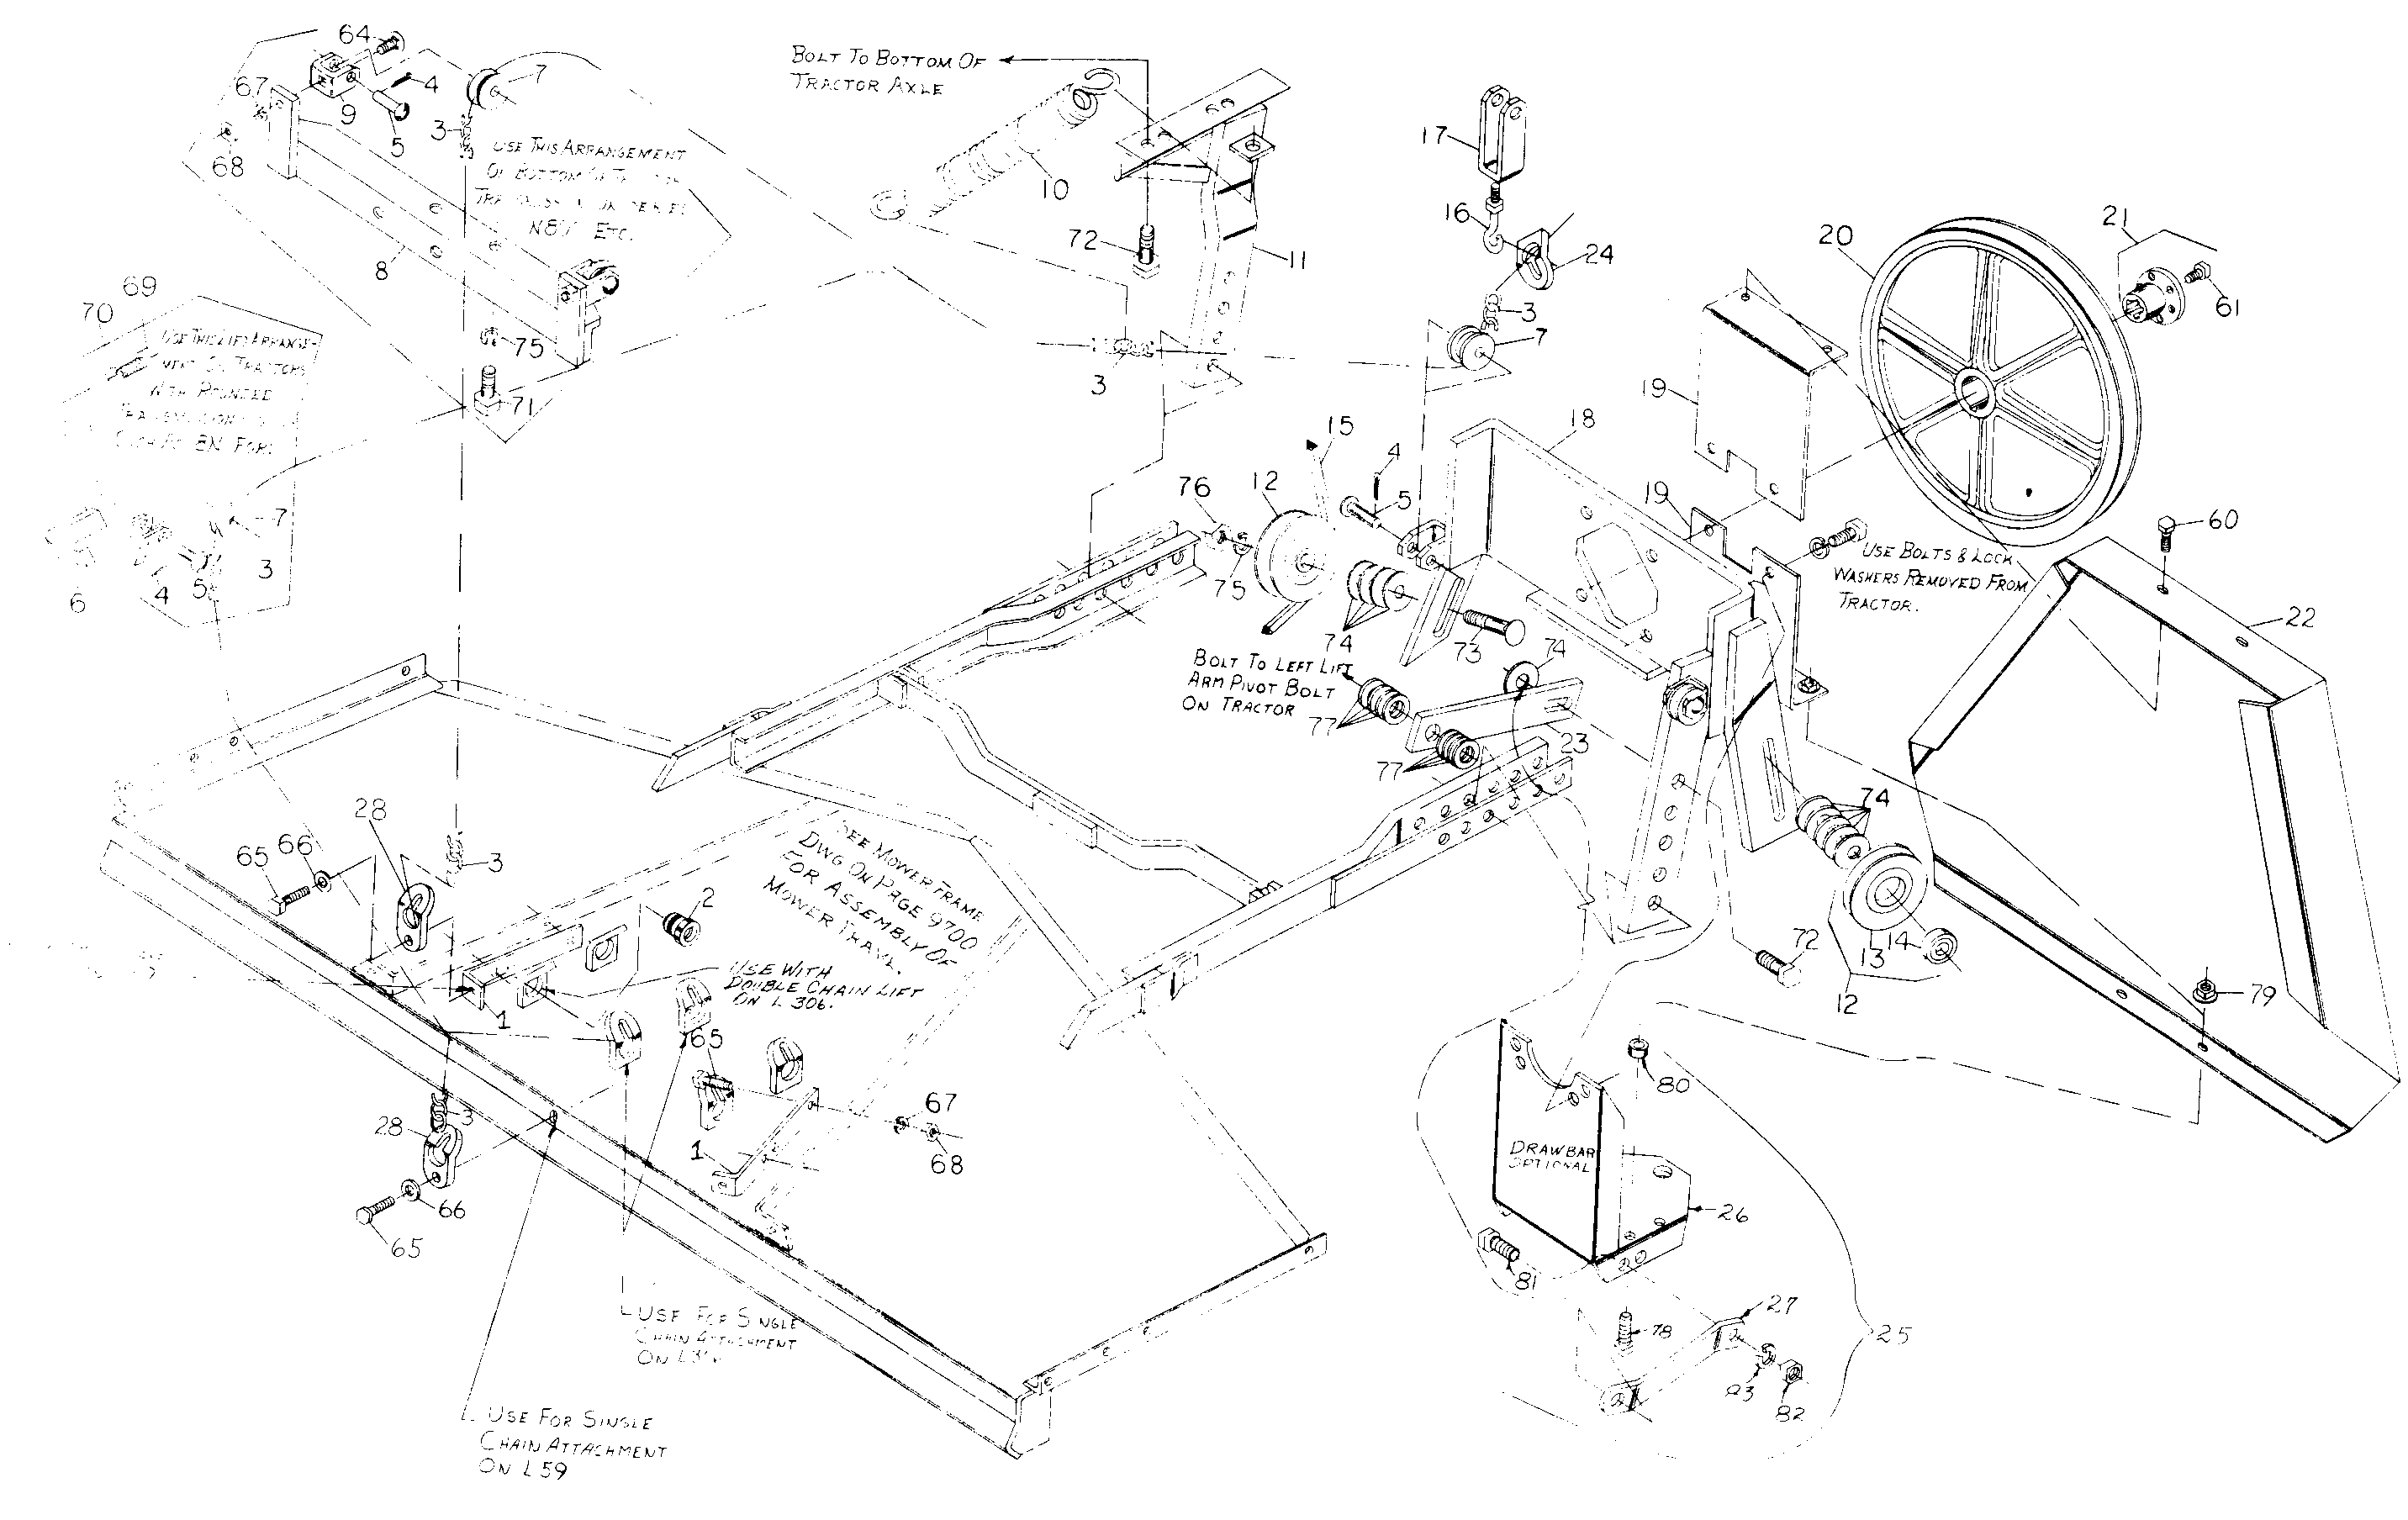 64
67
4
7
9
3
5
68
8
USE THIS ARRANGEMENT
N8N ETC.
BOLT TO BOTTOM OF
TRACTOR AXLE
10
72
11
3
17
16
24
3
7
20
21
61
19
69
70
USE THIS LIFT ARRANGE-
MENT ON TRACTORS
WITH ROUNDED
8N FORD
75
71
7
3
4
5
6
15
12
76
75
4
5
18
19
74
73
USE BOLTS & LOCK
WASHERS REMOVED FROM
TRACTOR.
60
22
BOLT TO LEFT LIFT
ARM PIVOT BOLT
ON TRACTOR
74
77
77
23
74
28
65
66
3
2
SEE MOWER FRAME
DWG ON PAGE 9700
FOR ASSEMBLY OF
MOWER FRAME.
USE WITH
DOUBLE CHAIN LIFT
ON L 306.
1
13
14
12
72
79
65
67
68
1
3
28
66
65
80
DRAWBAR
OPTIONAL
26
81
27
78
83
82
25
USE FOR SINGLE
CHAIN ATTACHMENT
USE FOR SINGLE
CHAIN ATTACHMENT
ON L 59